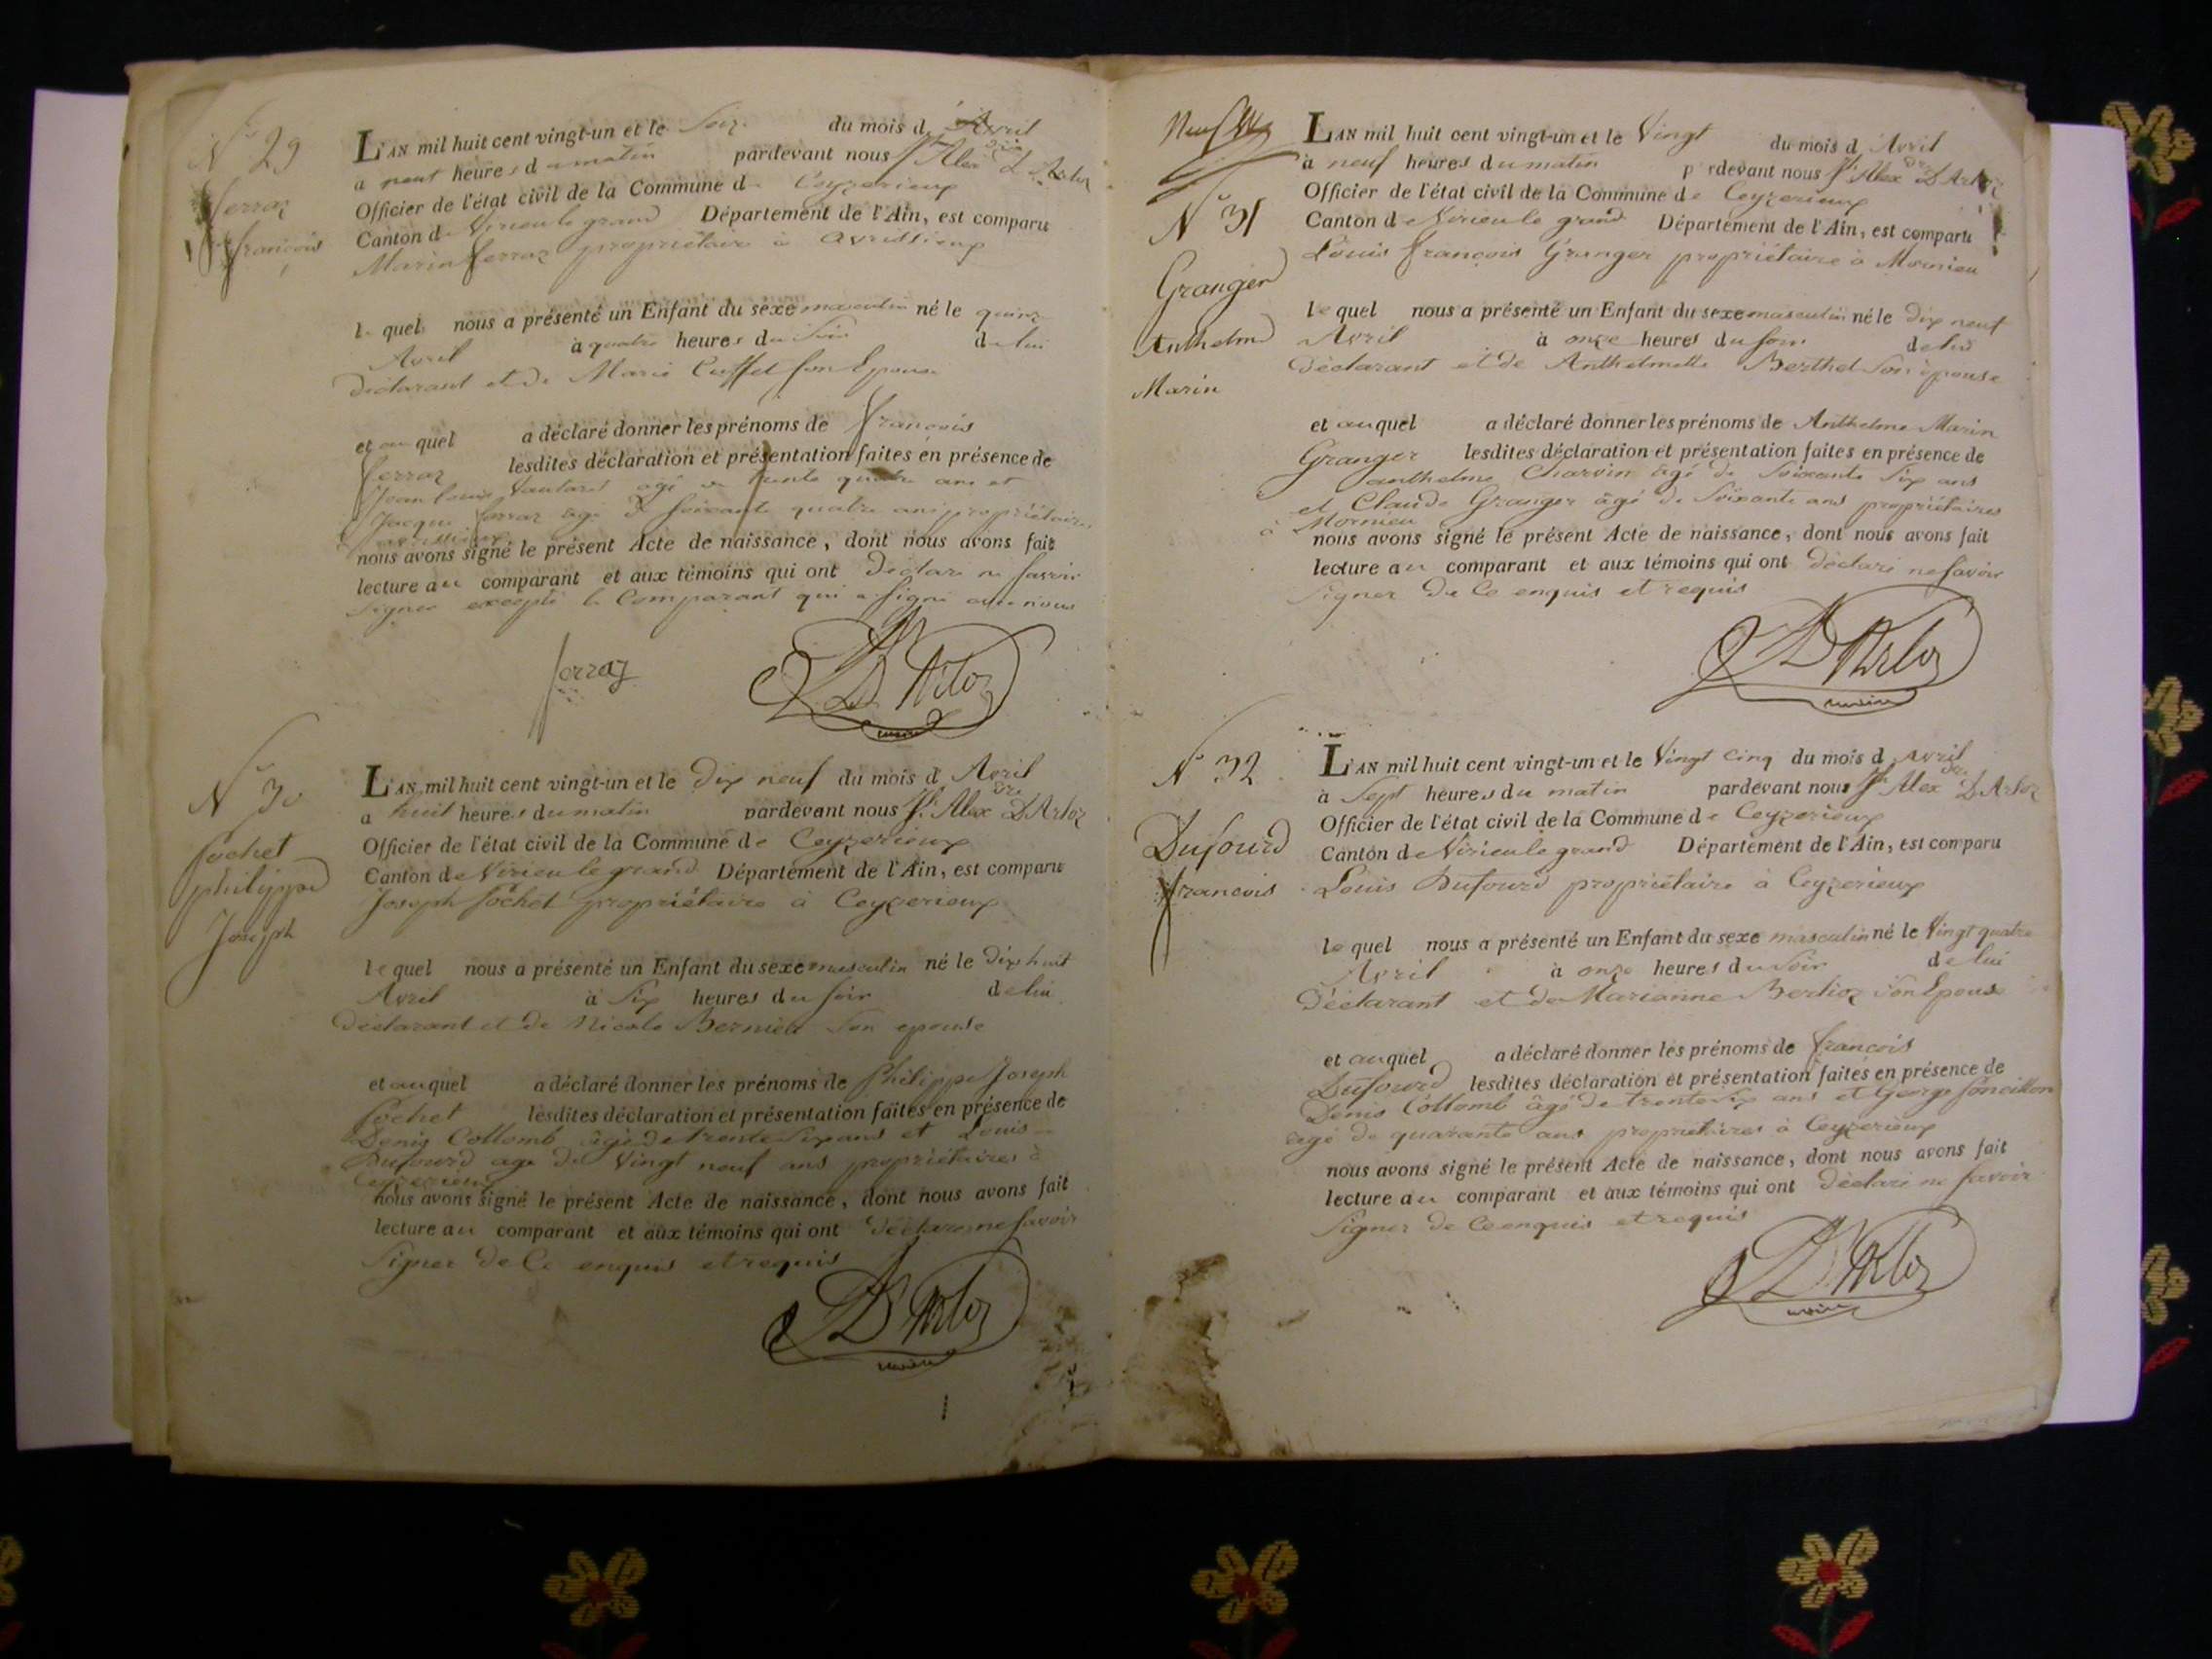 N° 29
ferraz
françois
L'AN mil huit cent vingt-un et le Seize du mois d'Avril
a neuf heures du matin pardevant nous Ph Alex dre D'Arloz
Officier de l'état civil de la Commune de Ceyzerieux
Canton de Virieu le grand Département de l'Ain, est comparu
Marin ferraz propriétaire à avrissieux
lequel nous a présenté un Enfant du sexe masculin né le quinze
Avril à quatre heures du Soir de lui
déclarant et de Marie Cuffet son Epouse
et auquel a déclaré donner les prénoms de françois
ferraz lesdites déclaration et présentation faites en présence de
Jean louis agé de trente quatre ans et
Jacque ferraz agé de soixante quatre ans propriétaires
nous avons signé le présent Acte de naissance, dont nous avons fait
lecture au comparant et aux témoins qui ont déclaré ne savoir
signer excepté le Comparant qui a signé avec nous
ferraz D'Arloz
maire
N° 30
Cochet
philippe
Joseph
L'AN mil huit cent vingt-un et le dix neuf du mois d'Avril
a huit heures du matin pardevant nous Ph. Alex dre D'Arloz
Officier de l'état civil de la Commune de Ceyzerieux
Canton de Virieu le grand Département de l'Ain, est comparu
Joseph Cochet propriétaire à Ceyzerieux
lequel nous a présenté un Enfant du sexe masculin né le dix huit
Avril à Six heures du soir de lui
déclarant et de Nicole Son epouse
et auquel a déclaré donner les prénoms de philippe Joseph
Cochet lesdites déclaration et présentation faites en présence de
Denis Collomb âgé de trente Six ans et Louis
Dufourd age de Vingt neuf ans propriétaires à
Ceyzerieux
nous avons signé le présent Acte de naissance, dont nous avons fait
lecture au comparant et aux témoins qui ont déclaré ne savoir
Signer de Ce enquis et requis
D'Arloz
maire
N° 31
Granger
Anthelme
Marin
L'AN mil huit cent vingt-un et le Vingt du mois d'Avril
à neuf heures du matin pardevant nous Ph Alex dre D'Arloz
Officier de l'état civil de la Commune de Ceyzerieux
Canton de Virieu le grand Département de l'Ain, est comparu
Louis françois Granger propriétaire à Mornieu
lequel nous a présenté un Enfant du sexe masculin né le dix neuf
Avril à onze heures du soir de lui
déclarant et de Anthelmette Berthet Son épouse
et auquel a déclaré donner les prénoms de Anthelme Marin
Granger lesdites déclaration et présentation faites en présence de
anthelme Charvin âgé de Soixante Six ans
et Claude Granger âgé de Soixante ans propriétaires
à Mornieu
nous avons signé le présent Acte de naissance, dont nous avons fait
lecture au comparant et aux témoins qui ont déclaré ne savoir
Signer de Ce enquis et requis
D'Arloz
maire
N° 32
Dufourd
françois
L'AN mil huit cent vingt-un et le Vingt cinq du mois d'avril
à Sept heures du matin pardevant nous Ph Alex dre D'Arloz
Officier de l'état civil de la Commune de Ceyzerieux
Canton de Virieu le grand Département de l'Ain, est comparu
Louis Dufourd propriétaire à Ceyzerieux
lequel nous a présenté un Enfant du sexe masculin né le Vingt quatre
Avril à onze heures du Soir de lui
déclarant et de Marianne Berlioz son Epouse
et auquel a déclaré donner les prénoms de françois
Dufourd lesdites déclaration et présentation faites en présence de
Denis Collomb âgé de trente Six ans et George
agé de quarante ans propriétaires à Ceyzerieux
nous avons signé le présent Acte de naissance, dont nous avons fait
lecture au comparant et aux témoins qui ont déclaré ne savoir
Signer de Ce enquis et requis
D'Arloz
maire